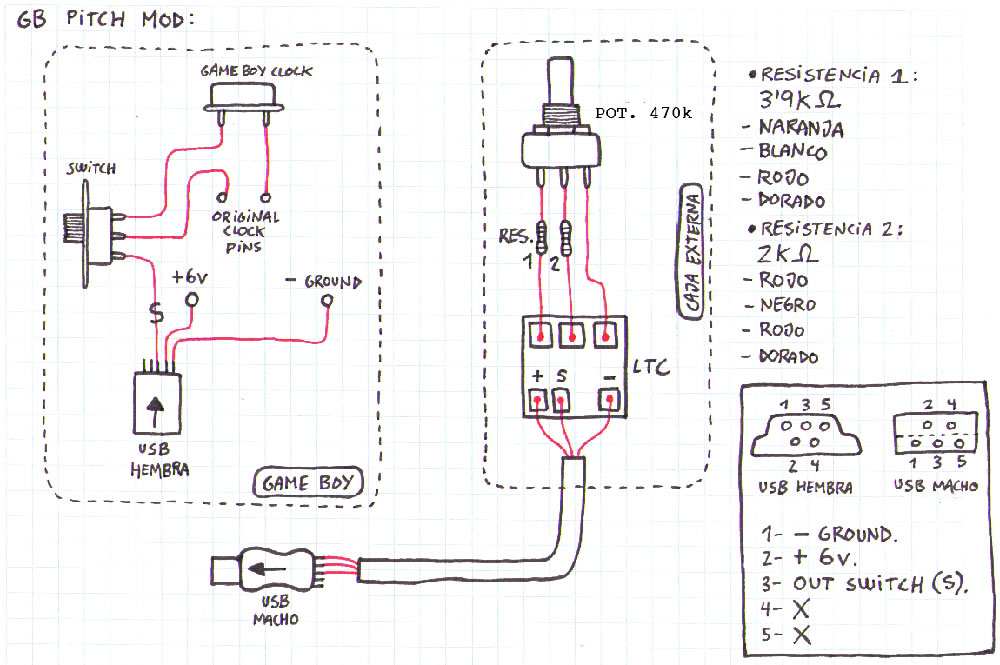 GB PITCH MOD:
GAME BOY CLOCK
SWITCH
ORIGINAL
CLOCK
PINS
+6V
- GROUND
S
USB
HEMBRA
GAME BOY
POT. 470k
RES.
1 2
CAJA EXTERNA
+ S -
LTC
USB
MACHO
• RESISTENCIA 1:
3'9K Ω
- NARANJA
- BLANCO
- ROJO
- DORADO
• RESISTENCIA 2:
2K Ω
- ROJO
- NEGRO
- ROJO
- DORADO
1 3 5
2 4
USB HEMBRA
2 4
1 3 5
USB MACHO
1- - GROUND.
2- + 6V.
3- OUT SWITCH (S).
4- X
5- X